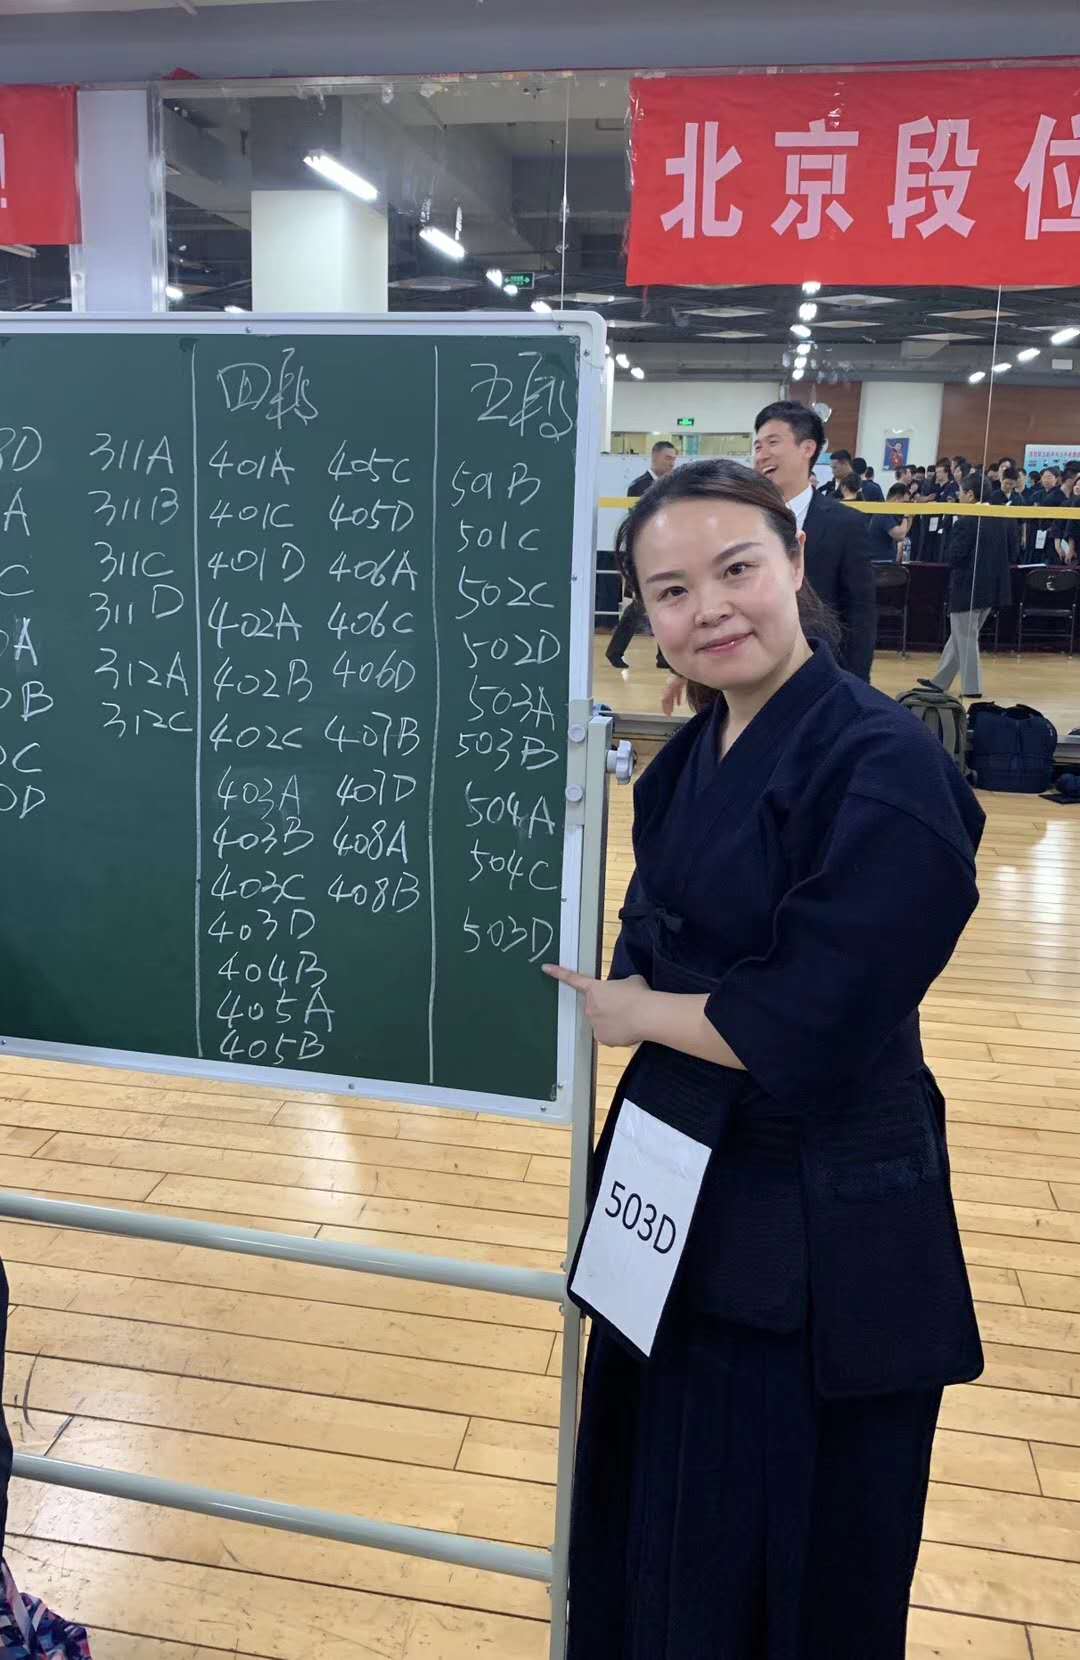 北京段位
四段
五段
3D
311A
401A
405C
501B
A
311B
401C
405D
501C
C
311C
401D
406A
502C
311D
402A
406C
502D
A
312A
402B
406D
503A
B
312C
402C
407B
503B
C
403A
407D
504A
D
403B
408A
504C
403C
408B
503D
403D
404B
405A
405B
503D